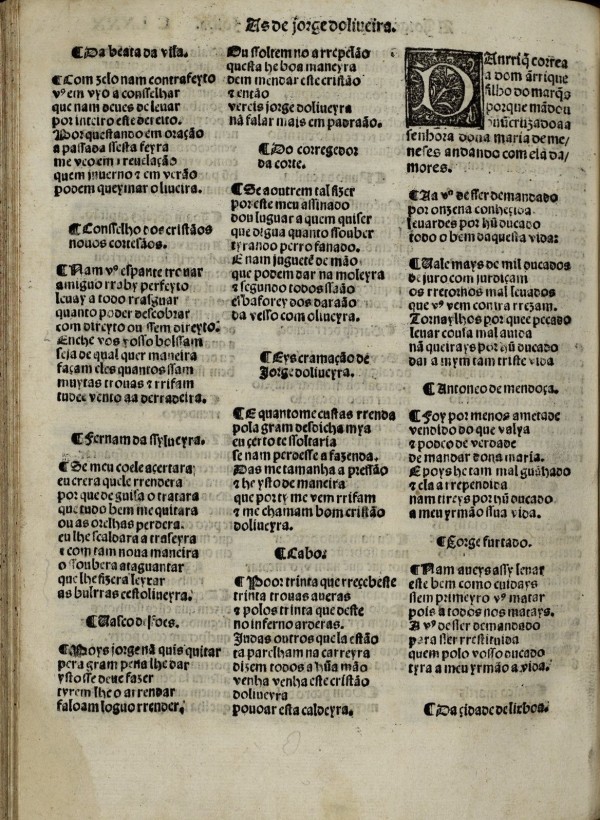 As de jorge doliueira.
¶ Da beata da villa.
¶ Com zelo nam contrafeyto
vᵒˢ em vyo a conselhar
que nam deues de leuar
por inteiro este dereito.
Porquestando em oração
a passada sesta feyra
me veo em reuelação
quem inuerno & em verão
podem queymar oliueira.
¶ Conselho dos cristãos
nouos cortesãos.
¶ Nam vᵒˢ espante trouar
amiguo rraby perfeyto
leuay a todo rrasguar
quanto poder descobrar
com dreyto ou sem dreyto.
Enche vos vosso bolssam
seja de qual quer maneira
façam eles quantos sam
muytas trouas & rrifam
tudee vento aa derradeira.
¶ Fernam da sylueyra.
¶ Se meu coele açertara
eu crera quele rrendera
por que de guisa o tratara
que tudo bem me quitara
ou as orelhas perdera.
eu lhe scaldara a traseyra
& com tam noua maneira
o soubera ataguantar
que lhe fizera leyxar
as bulrras cestoliueyra.
¶ Uasco de foes.
¶ Poys jorge nã quis quitar
pera gram pena lhe dar
ysto se deue fazer
tyrem lhe o arrendar
faloam loguo rrender.
Ou soltem no arrepelão
questa he boa maneyra
dem mendar este cristão
& então
vereis jorge doliueyra
nã falar mais em padraão.
¶ Do corregedor
da corte.
¶ Se a outrem tal fizer
por este meu assinado
dou luguar a quem quiser
que digua quanto souber
tyrando perro fanado.
E nam juguetê de mão
que podem dar na moleyra
& segundo todos são
esbaforey dos darão
da vesso com oliueyra.
¶ Eyscramação de
Jorge doliueyra.
¶ E quantome custas rrenda
pola gram desdicha mya
eu çerto te soltaria
se nam perdesse a fazenda.
Das me tamanha a pressão
& he ysto de maneira
que por ty me vem rrifam
& me chamam bom cristão
doliueyra.
¶ Cabo.
¶ Poor trinta que rreçebeste
trinta trouas aueras
& polos trinta que deste
no inferno arderas.
Judas outros que la estão
ta parelham na carreyra
dizem todos a hũa mão
venha venha este cristão
doliueyra
pouoar esta caldeyra.
DAnrriq̃ correa
a dom ãrrique
filho do marq̃s
porque mãdou
cruzado aa
senhora dona maria de me/
neses andando com ela da/
mores.
¶ Ha vᵒˢ de sser demandado
por onzena conheçida
leuardes por hũ ducado
todo o bem daquesta vida:
¶ Uale mays de mil ducados
de juro com jurdiçam
os rretornos mal leuados
que vᵒˢ vem contra rrezam.
Tornaylhos por quee pecado
leuar cousa mal auida
nã queirays por hũ ducado
dar a mym tam triste vida
¶ Antoneo de mendoça.
¶ Foy por menos ametade
vendido do que valya
& podco de verdade
de mandar dona maria.
E poys he tam mal guãhado
& ela arrependida
nam tireys por hũ ducado
a meu yrmão ssua vida.
¶ Jorge furtado.
¶ Nam aueys assy leuar
este bem como cuidays
sem primeyro vᵒˢ matar
pois a todos nos matays.
A vᵒˢ de sser demandado
pera sser rrestituida
quem polo vosso ducado
tyra a meu yrmão a vida.
¶ Da çidade de lixboa.